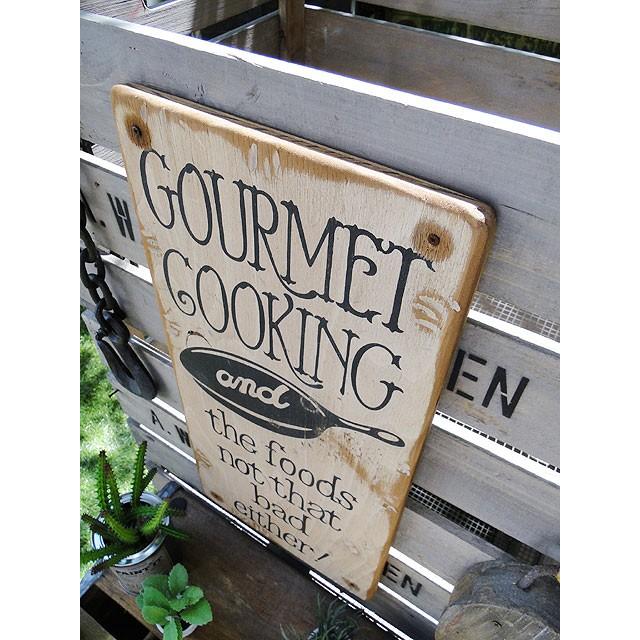 GOURMET
COOKING
and
the foods
not that
bad
either!
A.W
EN
A.W
EN